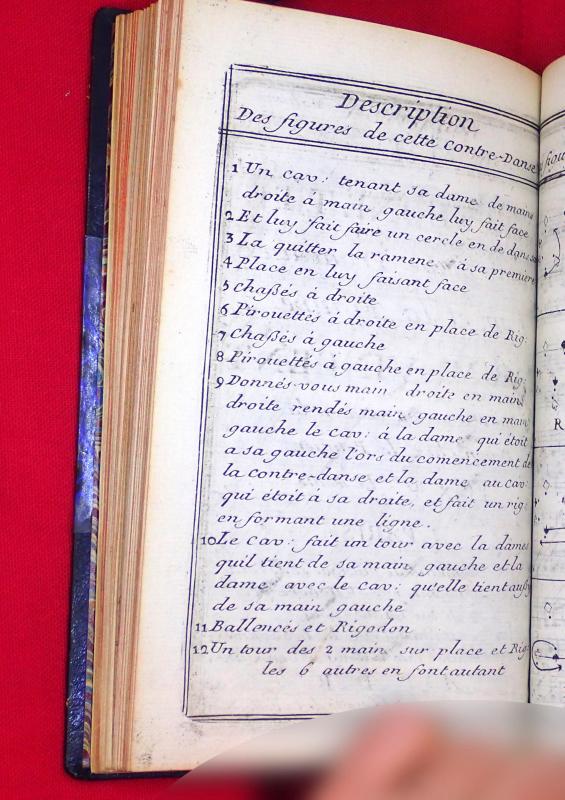 Description
Des figures de cette Contre-Danse
1 Un cav: tenant sa dame de main
droite á main gauche luy fait face
2 Et luy fait faire un cercle en dedans
3 La quitter la ramene á sa premiere
4 Place en luy faisant face
5 chaßés á droite
6 Pirouettés á droite en place de Rig:
7 Chaßés á gauche
8 Pirouettés á gauche en place de Rig:
9 Donnés-vous main droite en main
droite rendés main gauche en main
gauche le cav: á la dame qui étoit
a sa gauche l'ors du comencement de
la contre-danse et la dame au cav:
qui étoit á sa droite, et fait un rig:
en formant une ligne.
10 Le cav: fait un tour avec la dame
qu'il tient de sa main gauche et la
dame avec le cav: qu'elle tient außy
de sa main gauche
11 Ballencés et Rigodon
12 Un tour des 2 main sur place et Rig:
les 6 autres en font autant
R